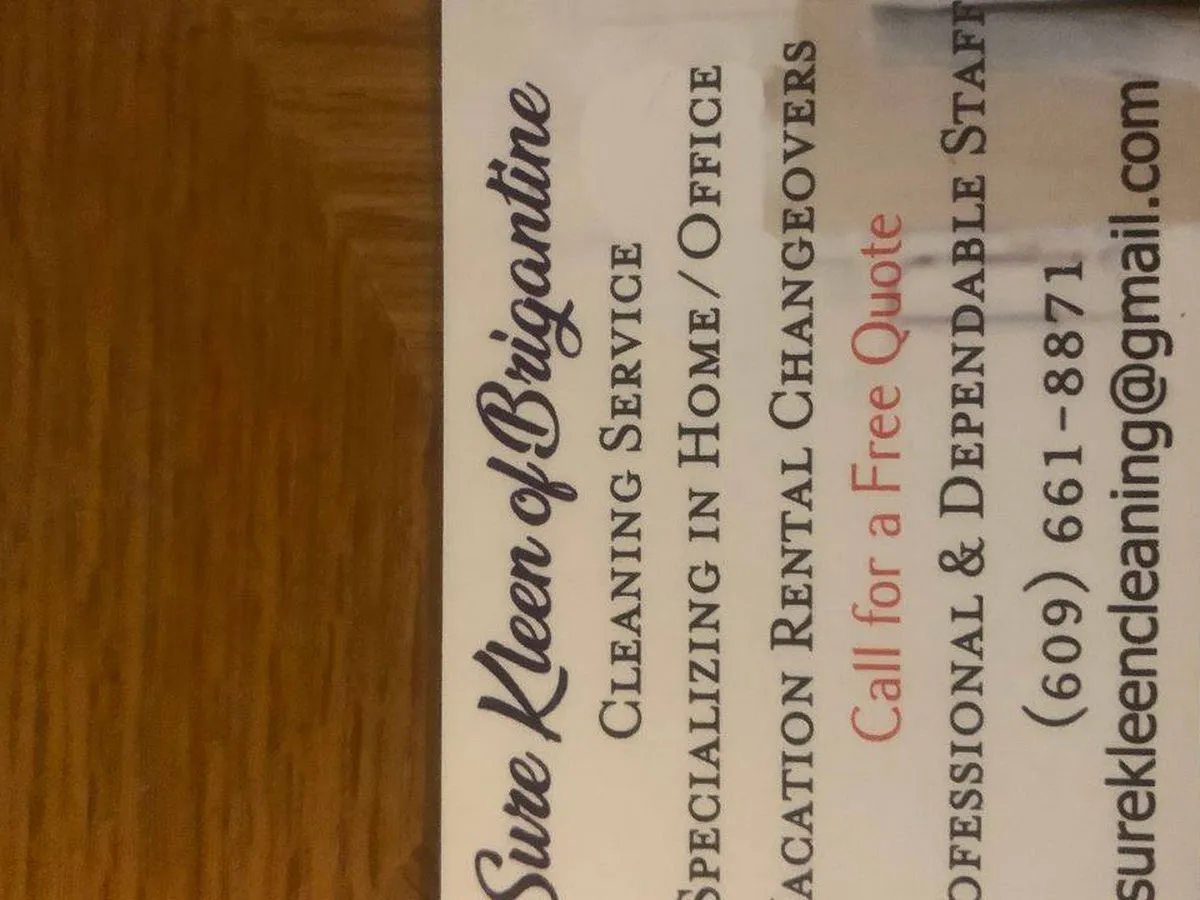 Sure Kleen of Brigantine
CLEANING SERVICE
SPECIALIZING IN HOME/OFFICE
VACATION RENTAL CHANGEOVERS
Call for a Free Quote
OFESSIONAL & DEPENDABLE STAFF
(609) 661-8871
surekleencleaning@gmail.com